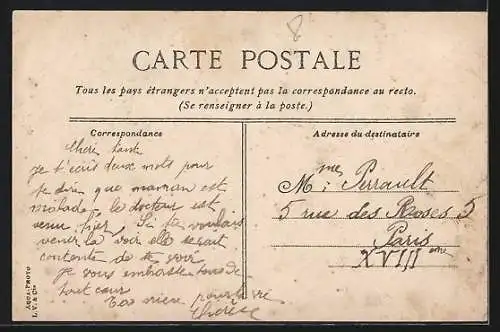 8
CARTE POSTALE
Tous les pays étrangers n'acceptent pas la correspondance au recto.
(Se renseigner à la poste.)
Correspondance
Chère tante
je t'écris deux mots pour
te dire que maman est
malade le docteur est
venu hier. Si tu voulais
venir la voir elle serait
contente de te voir
Je vous embrasse tous de
tout cœur
Ta pour la vie
Thérèse
Adresse du destinataire
Mme Perrault
5 rue des Roses 5
Paris
XVIII eme
AQUA-PHOTO
L. V. & Cie